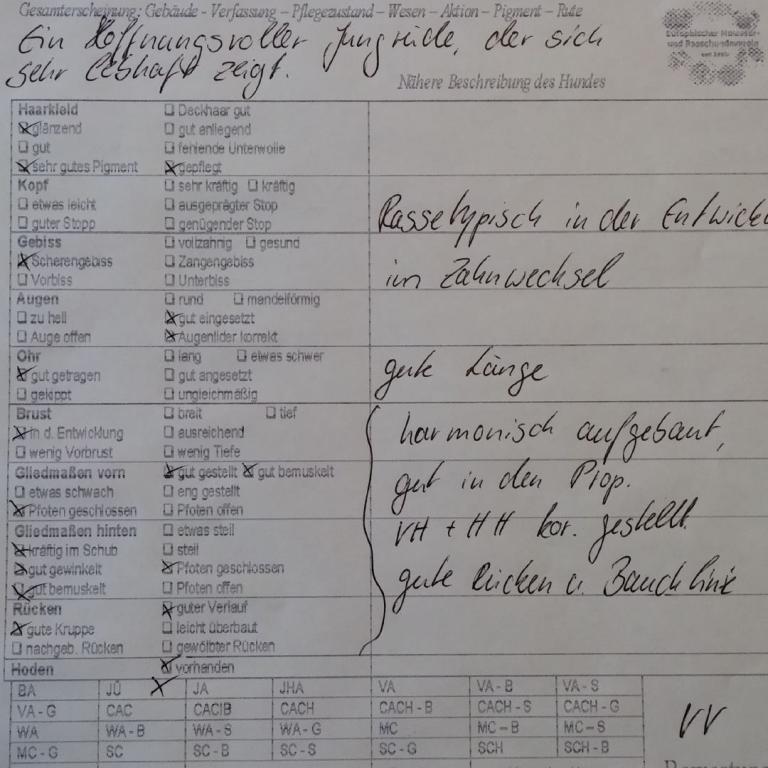 Gesamterscheinung: Gebäude - Verfassung – Pflegezustand – Wesen – Aktion – Pigment – Rute
Ein Hoffnungsvoller Jungrüde, der sich
sehr lebhaft zeigt.
Europäischer Molosser-
und Rassehundeverein
Nähere Beschreibung des Hundes
Haarkleid ❑ Deckhaar gut
☒ glänzend ❑ gut anliegend
❑ gut ❑ fehlende Unterwolle
☒ sehr gutes Pigment ☒ gepflegt
Kopf ❑ sehr kräftig ❑ kräftig
❑ etwas leicht ❑ ausgeprägter Stop
❑ guter Stopp ❑ genügender Stop
Rassetypisch in der Entwick
Gebiss ❑ vollzahnig ❑ gesund
☒ Scherengebiss ❑ Zangengebiss
❑ Vorbiss ❑ Unterbiss
im Zahnwechsel
Augen ❑ rund ❑ mandelförmig
❑ zu hell ☒ gut eingesetzt
❑ Auge offen ☒ Augenlider korrekt
Ohr ❑ lang ❑ etwas schwer
☒ gut getragen ❑ gut angesetzt
❑ gekippt ❑ ungleichmäßig
gute Länge
Brust ❑ breit ❑ tief
☒ in d. Entwicklung ❑ ausreichend
❑ wenig Vorbrust ❑ wenig Tiefe
Gliedmaßen vorn ☒ gut gestellt ☒ gut bemuskelt
❑ etwas schwach ❑ eng gestellt
☒ Pfoten geschlossen ❑ Pfoten offen
Gliedmaßen hinten ❑ etwas steil
☒ kräftig im Schub ❑ steil
☒ gut gewinkelt ☒ Pfoten geschlossen
☒ gut bemuskelt ❑ Pfoten offen
Rücken ☒ guter Verlauf
☒ gute Kruppe ❑ leicht überbaut
❑ nachgeb. Rücken ❑ gewölbter Rücken
harmonisch aufgebaut,
gut in den Prop.
VH + HH kor. gestellt
gute Rücken u. Bauchlinie
Hoden ☒ vorhanden
BA JÜ X JA JHA VA VA - B VA - S
VA - G CAC CACIB CACH CACH - B CACH - S CACH - G
WA WA - B WA - S WA - G MC MC – B MC – S
MC - G SC SC - B SC - S SC - G SCH SCH - B
VV